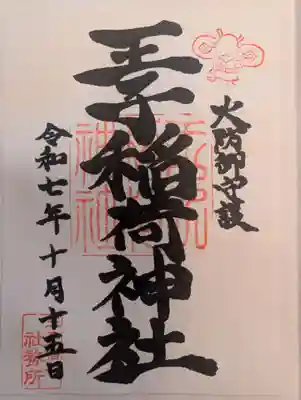 火防御守護
王子稲荷神社
令和七年十月十五日
社務所